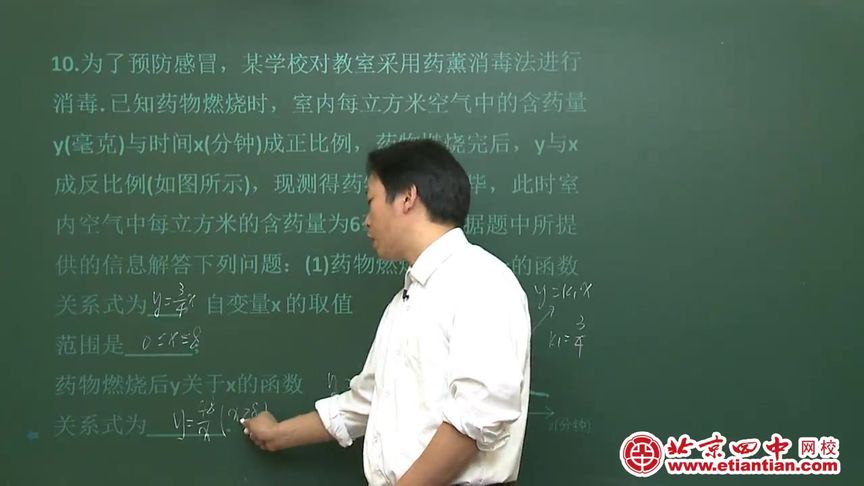 10.为了预防感冒，某学校对教室采用药薰消毒法进行
消毒.已知药物燃烧时，室内每立方米空气中的含药量
y(毫克)与时间x(分钟)成正比例，药物燃烧完后，y与x
成反比例(如图所示)，现测得药 毕，此时室
内空气中每立方米的含药量为6 据题中所提
供的信息解答下列问题：(1)药物燃 的函数
关系式为 y=3/4x 自变量x的取值
范围是 0≤x≤8;
药物燃烧后y关于x的函数
关系式为 y=
y=k₁x
k₁=3/4
x(分钟)
北京四中网校
www.etiantian.com